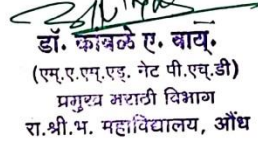 डॉ. कांबळे ए. वाय.
(एम.ए.एम.एड्. नेट पी.एच्.डी)
प्रमुख मराठी विभाग
रा.श्री.भ. महाविद्यालय, औंध